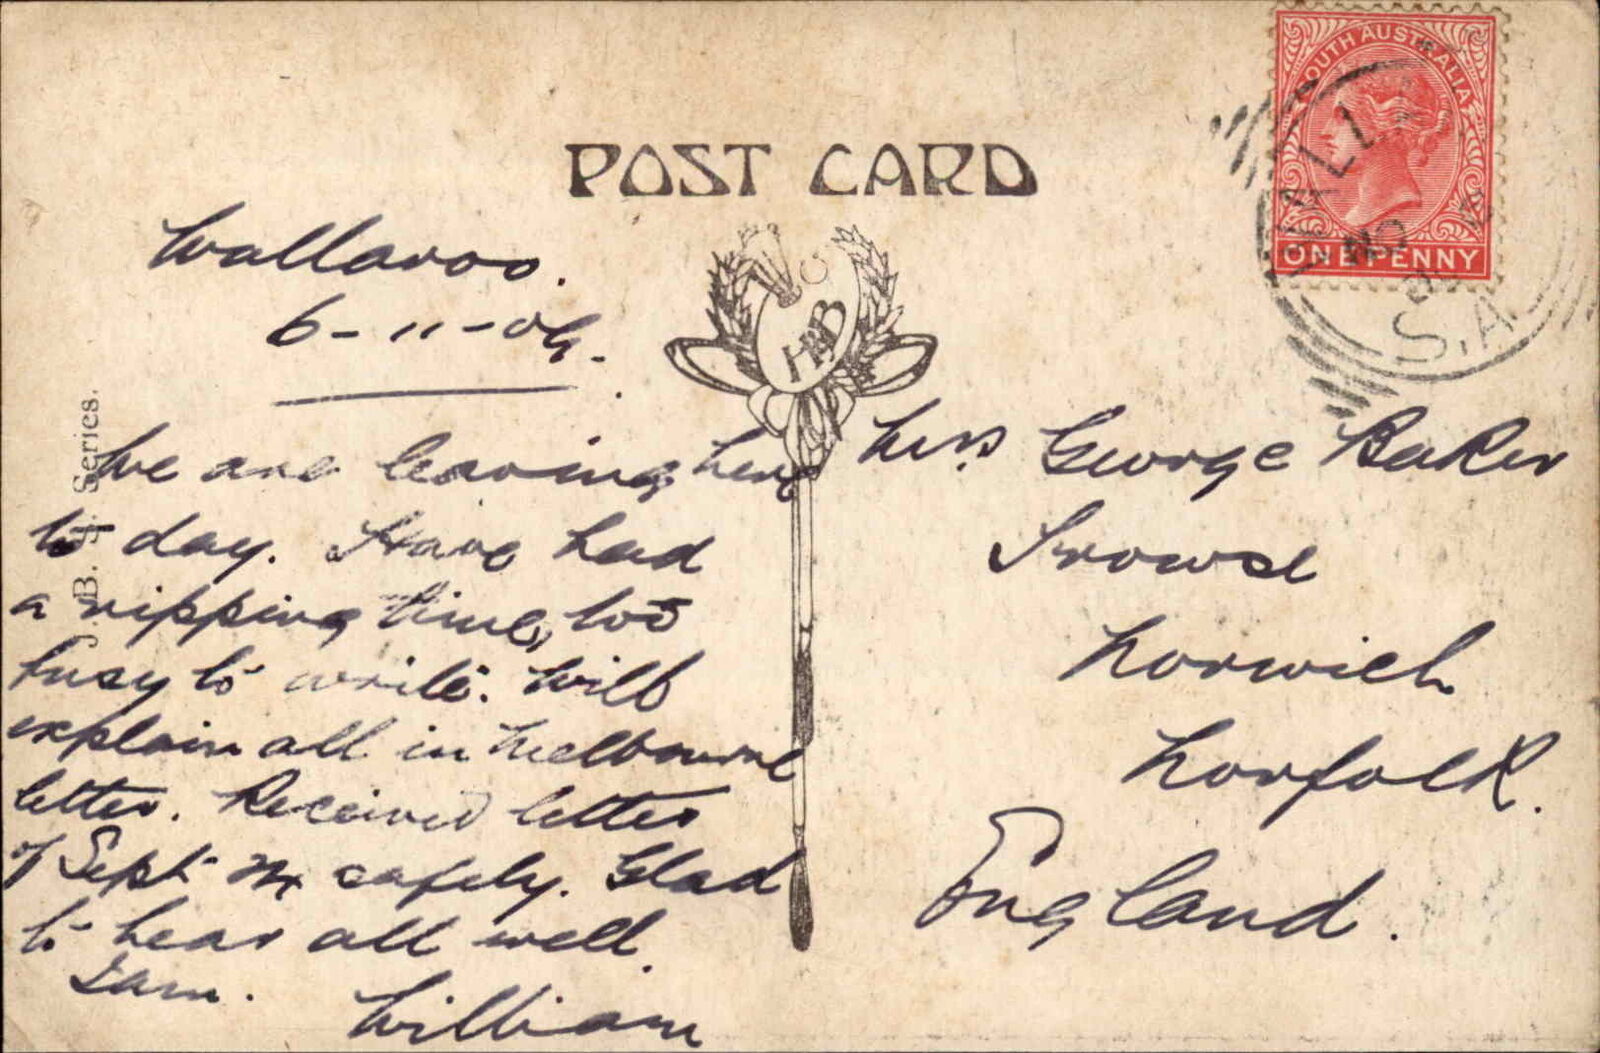 POST CARD
SOUTH AUSTRALIA
ONE PENNY
WALL
NO
S.A
HB
Series.
B.
Wallaroo.
6-11-04.
We are leaving here
to day. Have had
a ripping time, too
busy to write. Will
explain all in Melbourne
letter. Received letter
of Sept safely. Glad
to hear all well.
I am.
William
Mrs George Baker
Trowse
Norwich
Norfolk.
England.